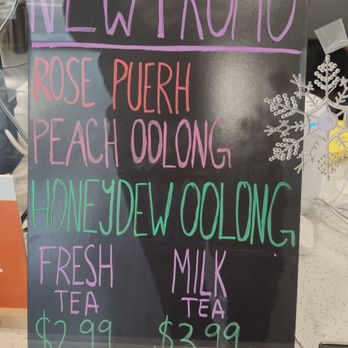 NEW PROMO
ROSE PUERH
PEACH OOLONG
HONEYDEW OOLONG
FRESH MILK
TEA TEA
$2.99 $3.99